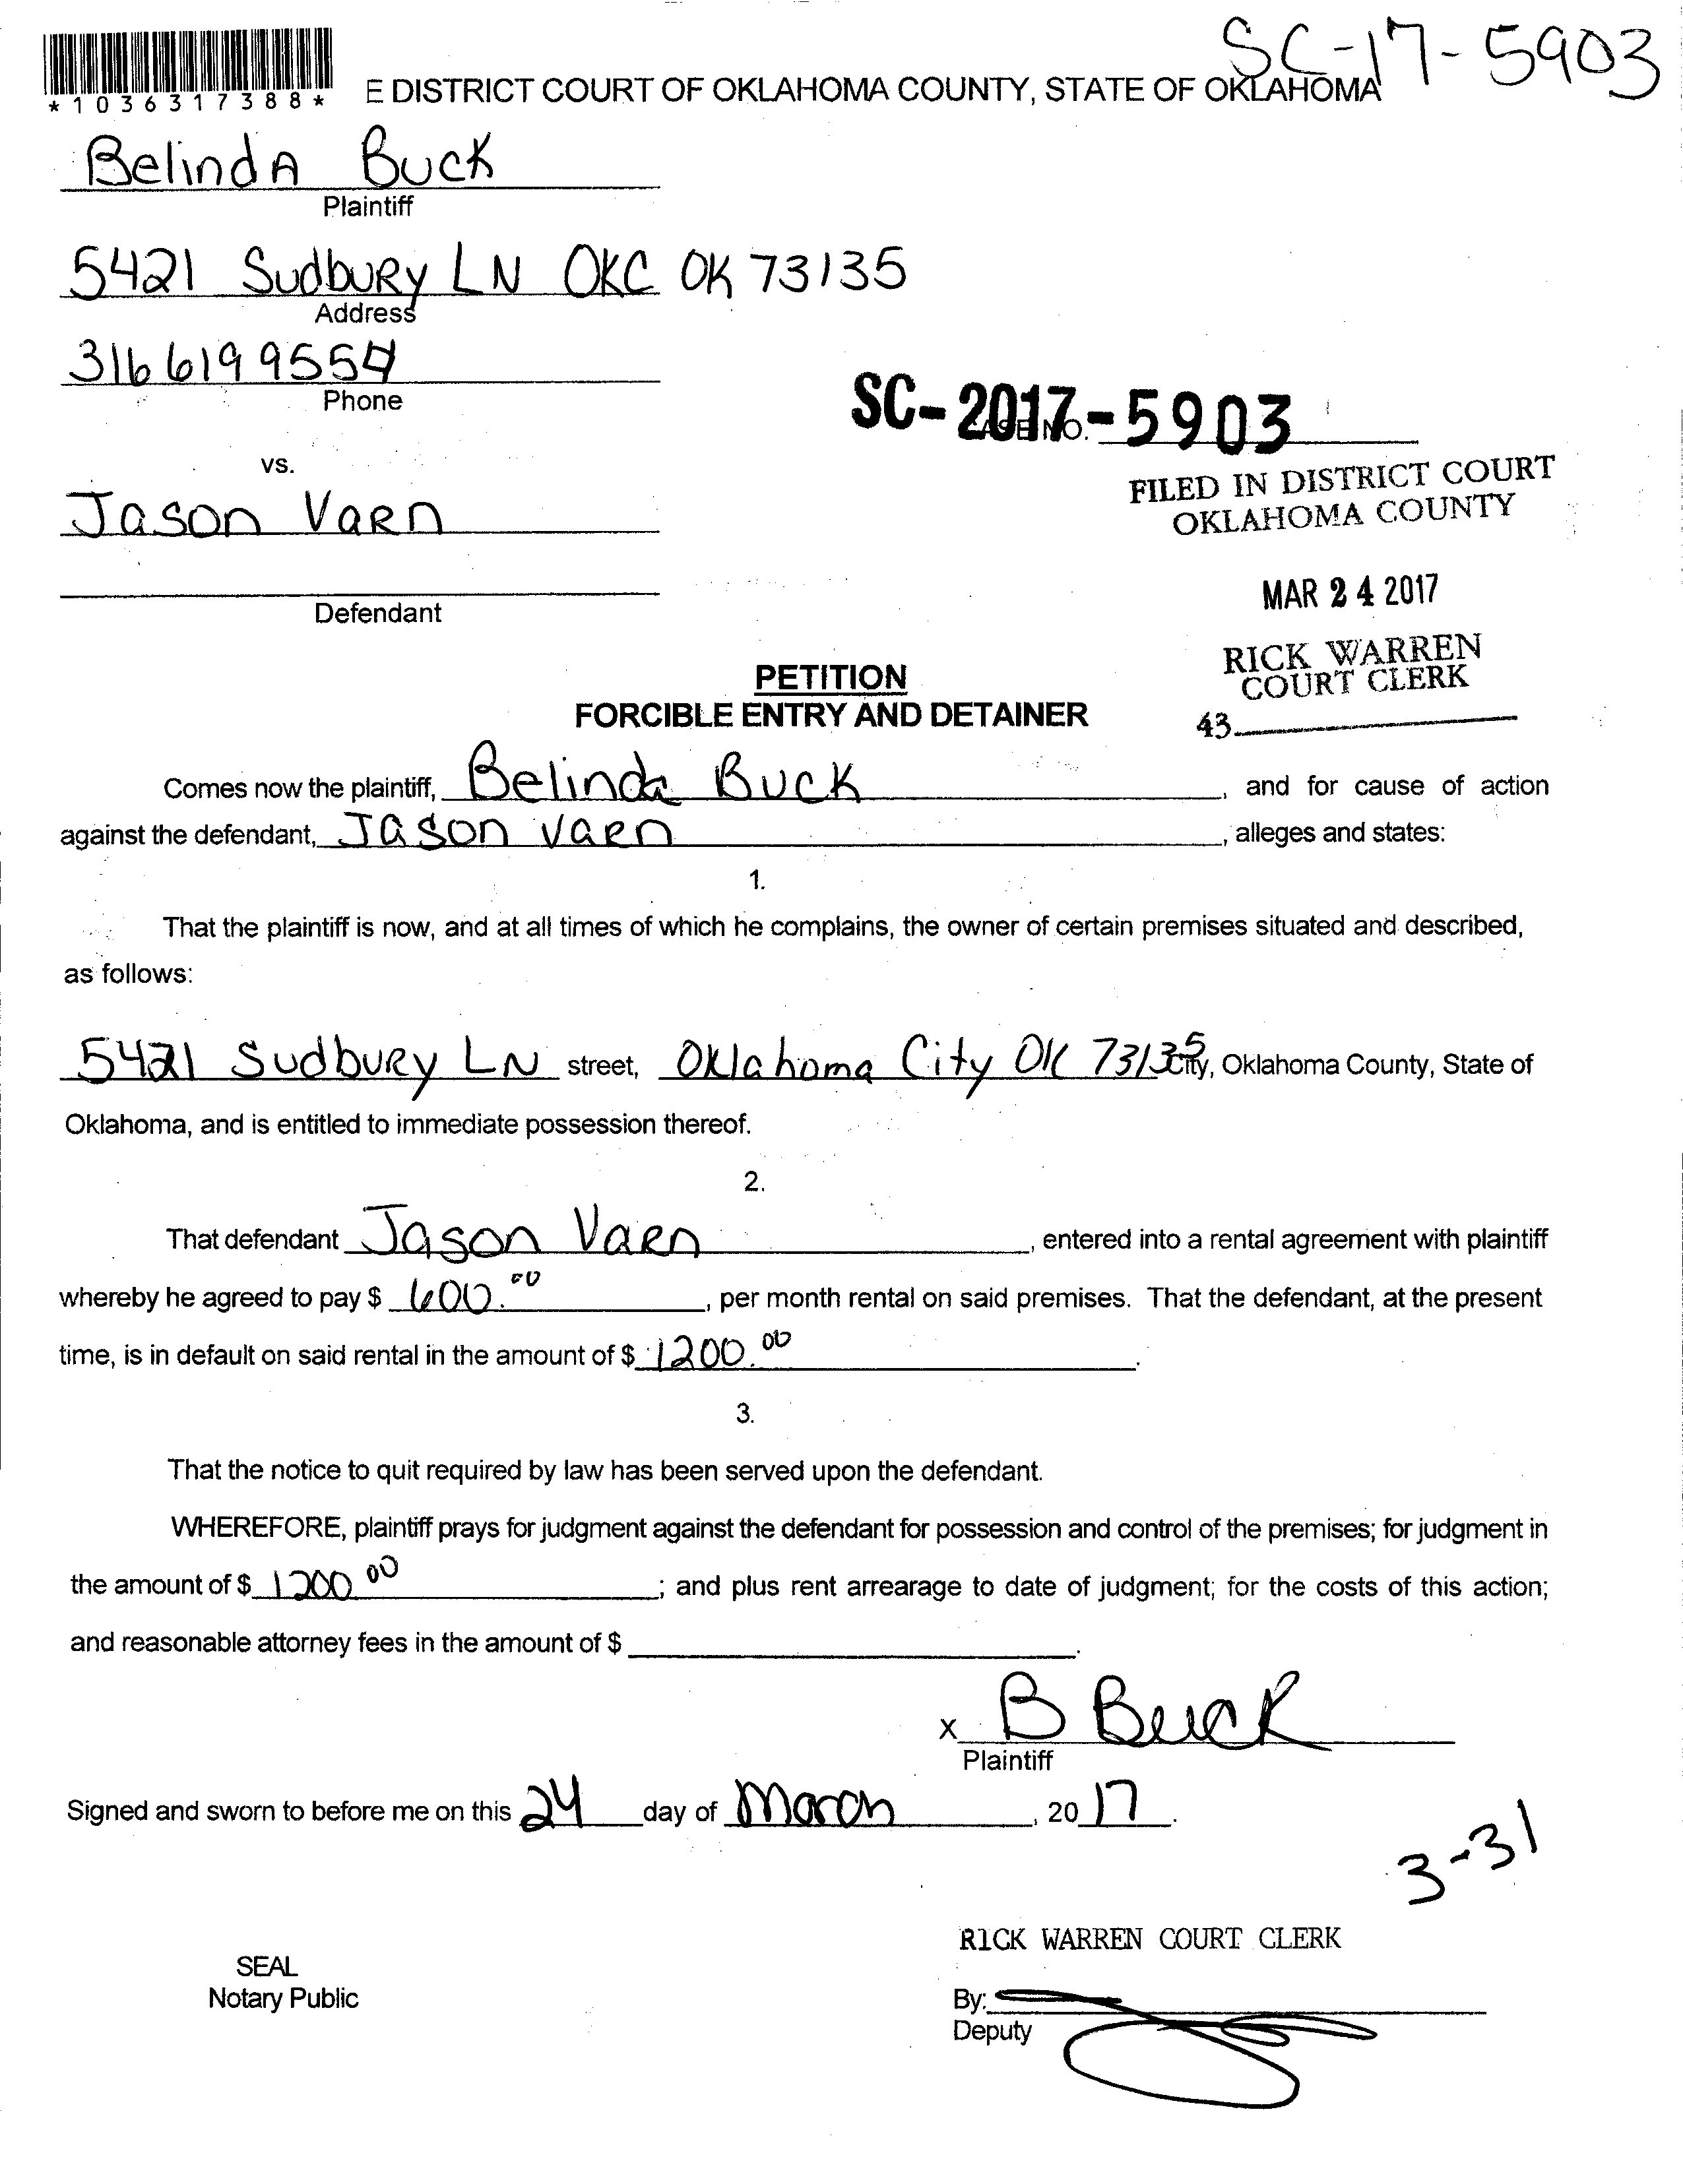 SC-17-5903
*1036317388*
E DISTRICT COURT OF OKLAHOMA COUNTY, STATE OF OKLAHOMA
Belinda Buck
Plaintiff
5421 Sudbury LN OKC OK 73135
Address
316 619 9554
Phone
SC-2017-5903
CASE NO.
vs.
FILED IN DISTRICT COURT
OKLAHOMA COUNTY
Jason Varn
MAR 24 2017
Defendant
RICK WARREN
COURT CLERK
43
PETITION
FORCIBLE ENTRY AND DETAINER
Comes now the plaintiff, Belinda Buck, and for cause of action
against the defendant, Jason Varn, alleges and states:
1.
That the plaintiff is now, and at all times of which he complains, the owner of certain premises situated and described,
as follows:
5421 Sudbury LN street, Oklahoma City OK 73135 City, Oklahoma County, State of
Oklahoma, and is entitled to immediate possession thereof.
2.
That defendant Jason Varn, entered into a rental agreement with plaintiff
whereby he agreed to pay $ 600.00, per month rental on said premises. That the defendant, at the present
time, is in default on said rental in the amount of $ 1200.00.
3.
That the notice to quit required by law has been served upon the defendant.
WHEREFORE, plaintiff prays for judgment against the defendant for possession and control of the premises; for judgment in
the amount of $ 1200 00; and plus rent arrearage to date of judgment; for the costs of this action;
and reasonable attorney fees in the amount of $ .
x B Buck
Plaintiff
Signed and sworn to before me on this 24 day of March, 20 17.
3-31
RICK WARREN COURT CLERK
SEAL
Notary Public
By:
Deputy